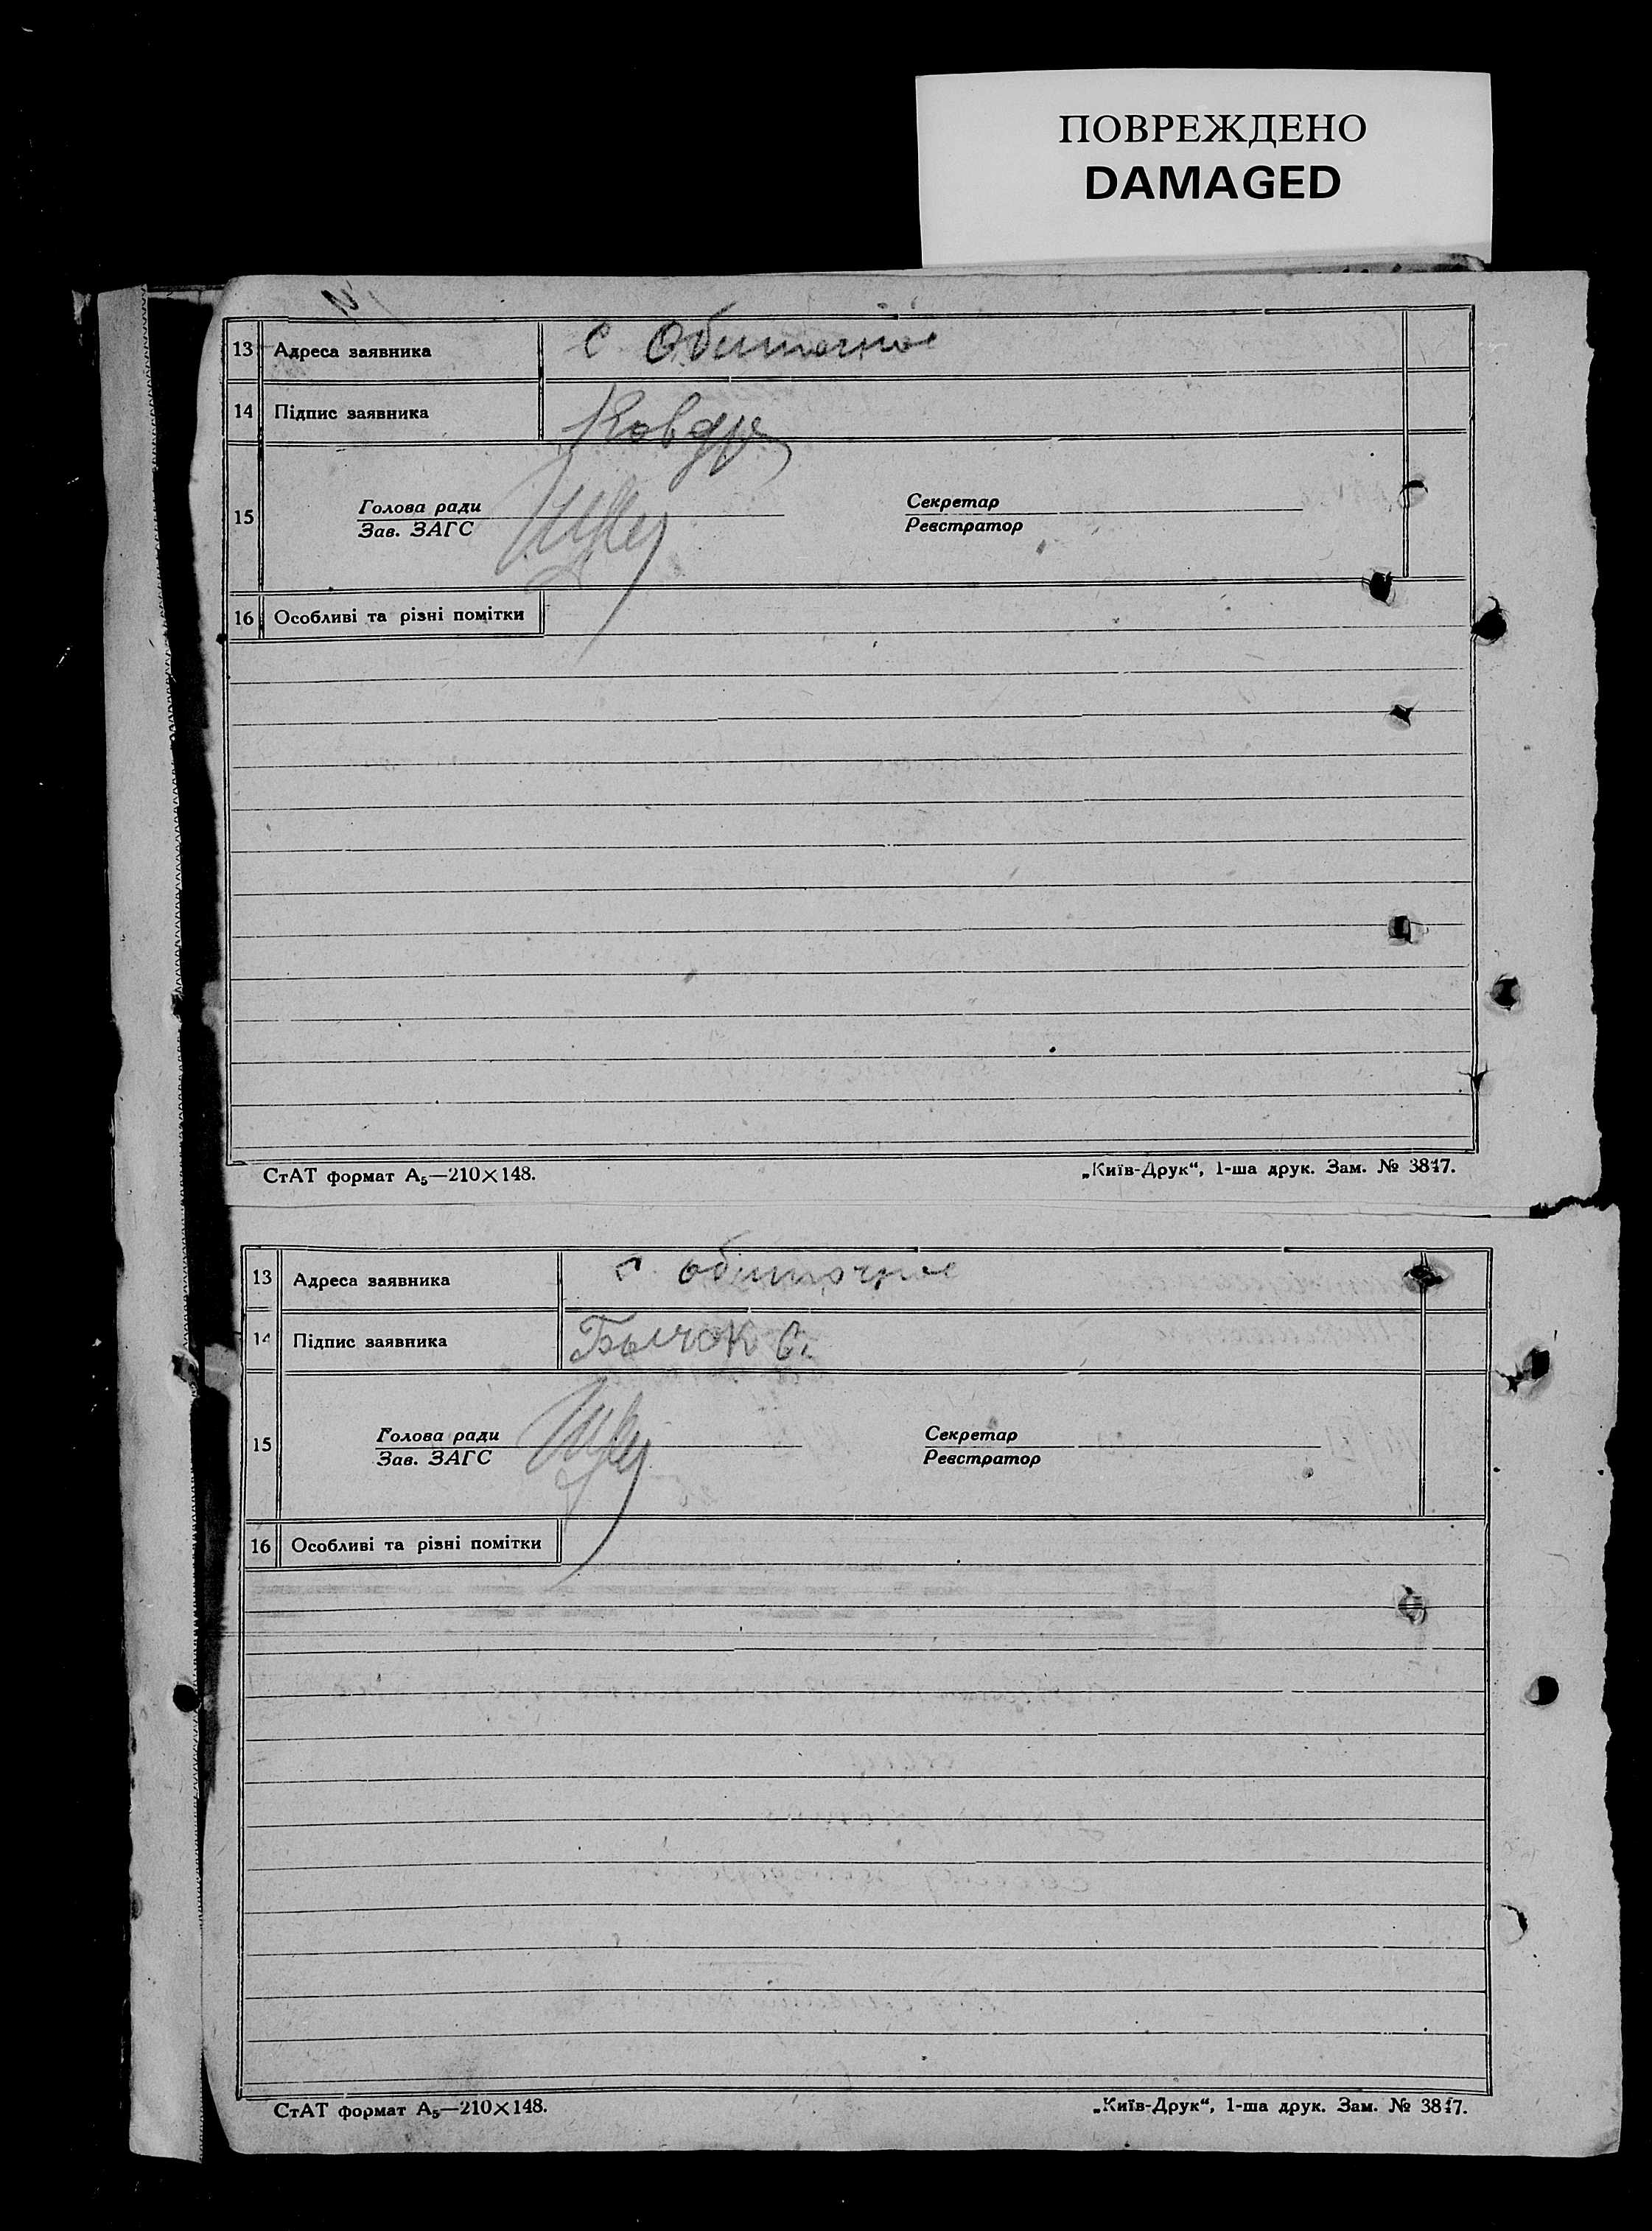 ПОВРЕЖДЕНО
DAMAGED
13 Адреса заявника с Обиточное
14 Підпис заявника
15 Голова ради Секретар
Зав. ЗАГС Реєстратор
16 Особливі та різні помітки
СтАТ формат А₅—210×148. „Київ-Друк“, 1-ша друк. Зам. № 3847.
13 Адреса заявника с обиточное
14 Підпис заявника Бычок С.
15 Голова ради Секретар
Зав. ЗАГС Реєстратор
16 Особливі та різні помітки
СтАТ формат А₅—210×148. „Київ-Друк“, 1-ша друк. Зам. № 3847.